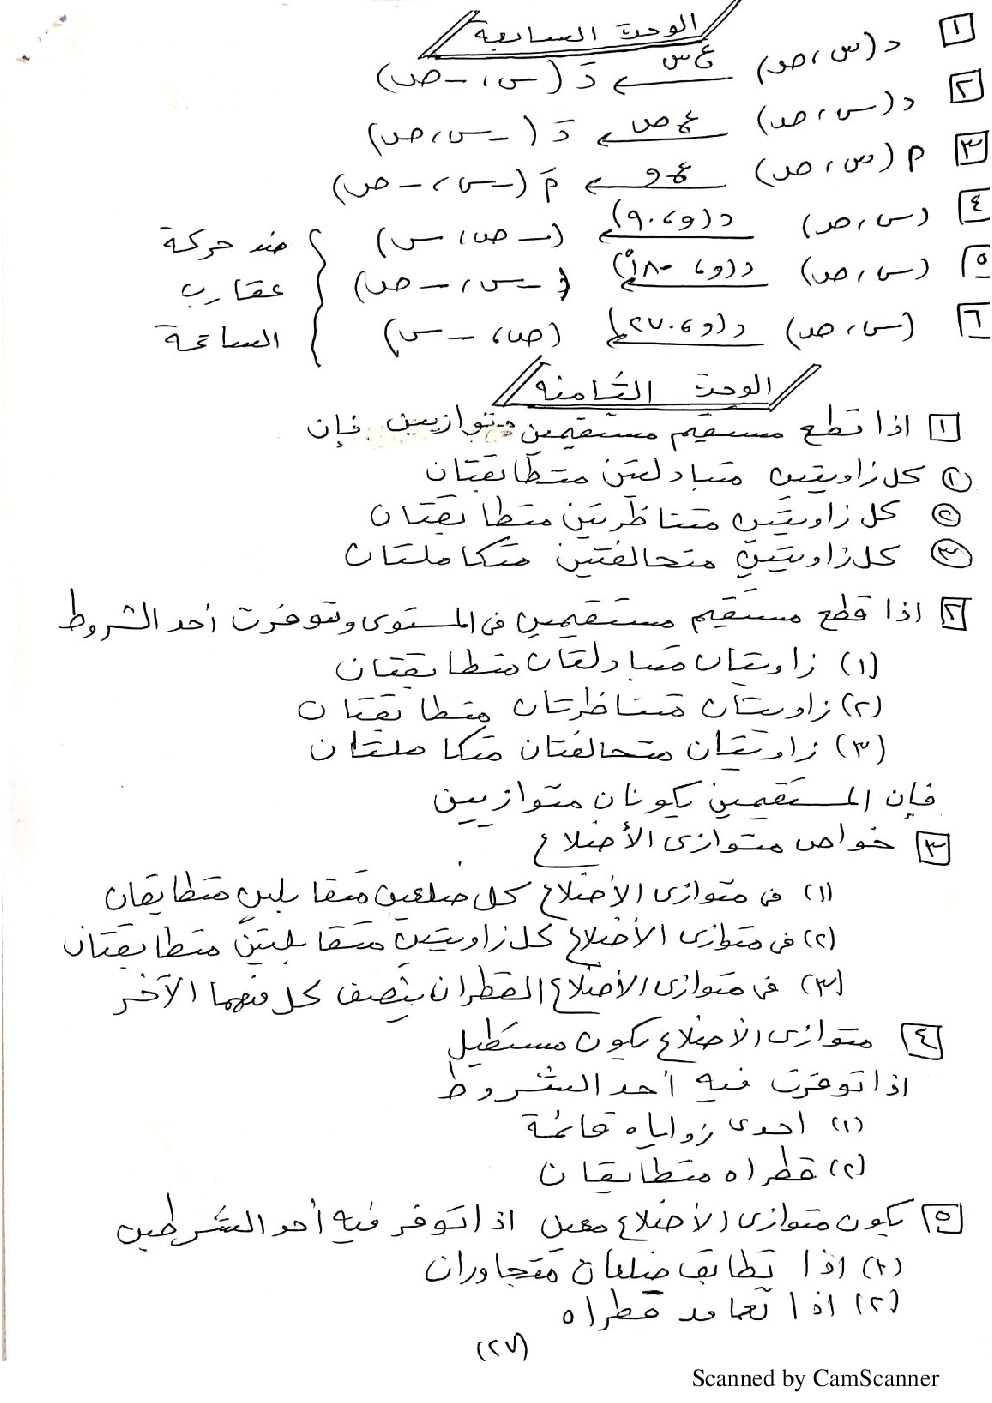 الوحدة السابعة
١ د (س ، ص) ع س د َ (س ، – ص)
٢ د (س ، ص) ع ص د َ (– س ، ص)
٣ م (س ، ص) ع و م َ (– س ، – ص)
٤ (س ، ص) د (و ، ٩٠) (– ص ، س)
٥ (س ، ص) د (و ، ١٨٠) (– س ، – ص)
٦ (س ، ص) د (و ، ٢٧٠) (ص ، – س)
ضد حركة
عقارب
الساعة
الوحدة الثامنة
١ اذا قطع مستقيم مستقيمين متوازيين فإن
١ كل زاويتين متبادلتين متطابقتان
٢ كل زاويتين متناظرتين متطابقتان
٣ كل زاويتين متحالفتين متكاملتان
٢ اذا قطع مستقيم مستقيمين فى المستوى وتوفرت أحد الشروط
(١) زاويتان متبادلتان متطابقتان
(٢) زاويتان متناظرتان متطابقتان
(٣) زاويتان متحالفتان متكاملتان
فإن المستقيمين يكونان متوازيين
٣ خواص متوازى الأضلاع
(١) فى متوازى الأضلاع كل ضلعين متقابلين متطابقان
(٢) فى متوازى الأضلاع كل زاويتين متقابلتين متطابقتان
(٣) فى متوازى الأضلاع القطران ينصف كل منهما الآخر
٤ متوازى الأضلاع يكون مستطيل
اذا توفرت فيه أحد الشروط
(١) احدى زواياه قائمة
(٢) قطراه متطابقان
٥ يكون متوازى الأضلاع معين اذا توفر فيه أحد الشرطين
(١) اذا تطابق ضلعان متجاوران
(٢) اذا تعامد قطراه
(٢٧)
Scanned by CamScanner